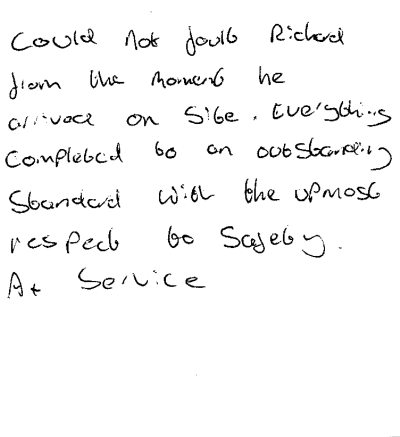 Could not fault Richard
from the moment he
arrived on Site. Everything
Completed to an outstanding
Standard with the upmost
respect to Safety.
A+ Service